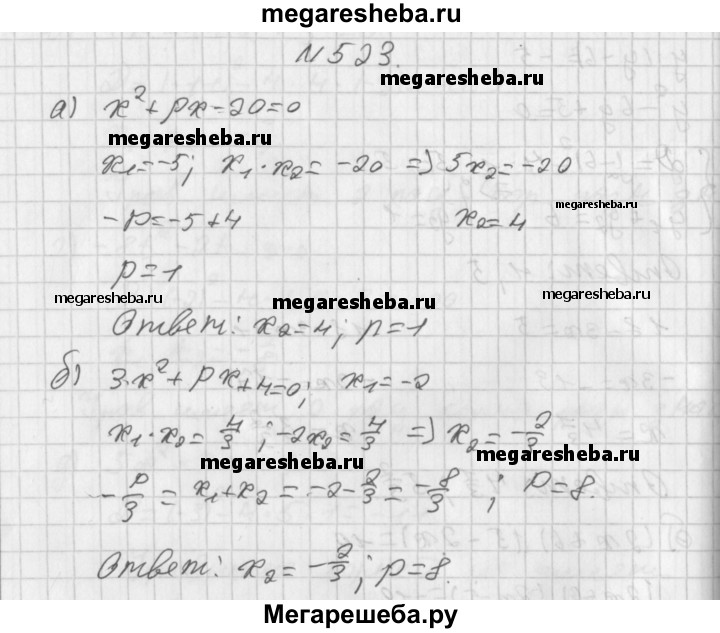 megaresheba.ru
N 523.
megaresheba.ru
а) x² + px - 20 = 0
megaresheba.ru
x₁ = -5; x₁ · x₂ = -20 ⇒ 5x₂ = -20
megaresheba.ru
-p = -5 + 4 x₂ = 4
p = 1
megaresheba.ru megaresheba.ru megaresheba.ru
Ответ: x₂ = 4; p = 1
б) 3x² + px + 4 = 0; x₁ = -2
x₁ · x₂ = 4/3; -2x₂ = 4/3 ⇒ x₂ = -2/3
megaresheba.ru megaresheba.ru
-p/3 = x₁ + x₂ = -2 - 2/3 = -8/3; p = 8.
Ответ: x₂ = -2/3; p = 8.
Мегарешеба.ру